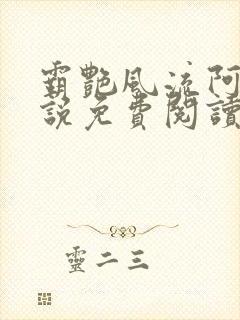 霸艷風流阿
說免費閱讀
靈二三